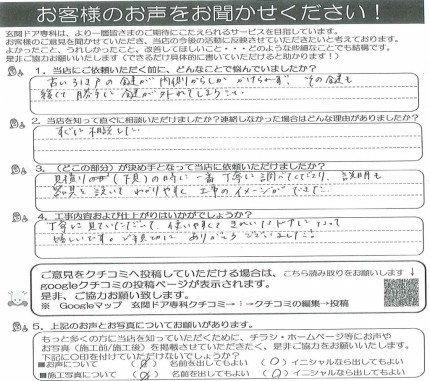 お客様のお声をお聞かせください！
玄関ドア専科は、より一層皆さまのご期待にこたえられるサービスを目指しています。
お客様のご意見を聞かせていただき、当店の今後の活動に反映させていただきたいと考えております。
よかったこと、うれしかったこと、改善してほしいこと・・・どのような些細なことでも結構です。
是非ご協力お願いします（できるだけ具体的に書いていただけると助かります！）
1．当店にご依頼いただく前に、どんなことで悩んでいましたか？
古い引き戸の鍵が内側からしかかけられず、その鍵も
緩くて勝手に鍵が外れてしまうこと。
2．当店を知って直ぐに相談いただけましたか？連絡しなかった場合はどんな理由がありましたか？
すぐに相談した。
3．（どこの部分）が決め手となって当店に依頼いただけましたか？
見積り（下見）の時に一番丁寧に調べてくださり、説明も
わかりやすく工事のイメージができた。
4．工事内容および仕上がりはいかがでしょうか？
丁寧に見ていただいて、使いやすくきれいなドアになって
嬉しいです。ご親切にありがとうございました。
ご意見をクチコミへ投稿していただける場合は、こちら読み取りをお願いします↓
googleクチコミの投稿ページが表示されます。
是非、ご協力お願い致します。
※ Googleマップ 玄関ドア専科クチコミ→⋮→クチコミの編集→投稿
5．上記のお声とお写真についてお願いがあります。
もっと多くの方に当店を知っていただくために、チラシ・ホームページ等にお声や
お写真（施工前/施工後）を掲載させていただきたく、是非ご協力をお願いいたします。
下記に〇印を付けていただけないでしょうか？
■お声について （ ）名前を出してもよい （〇）イニシャルなら出してもよい
■施工写真について （ ）名前を出してもよい （〇）イニシャルなら出してもよい